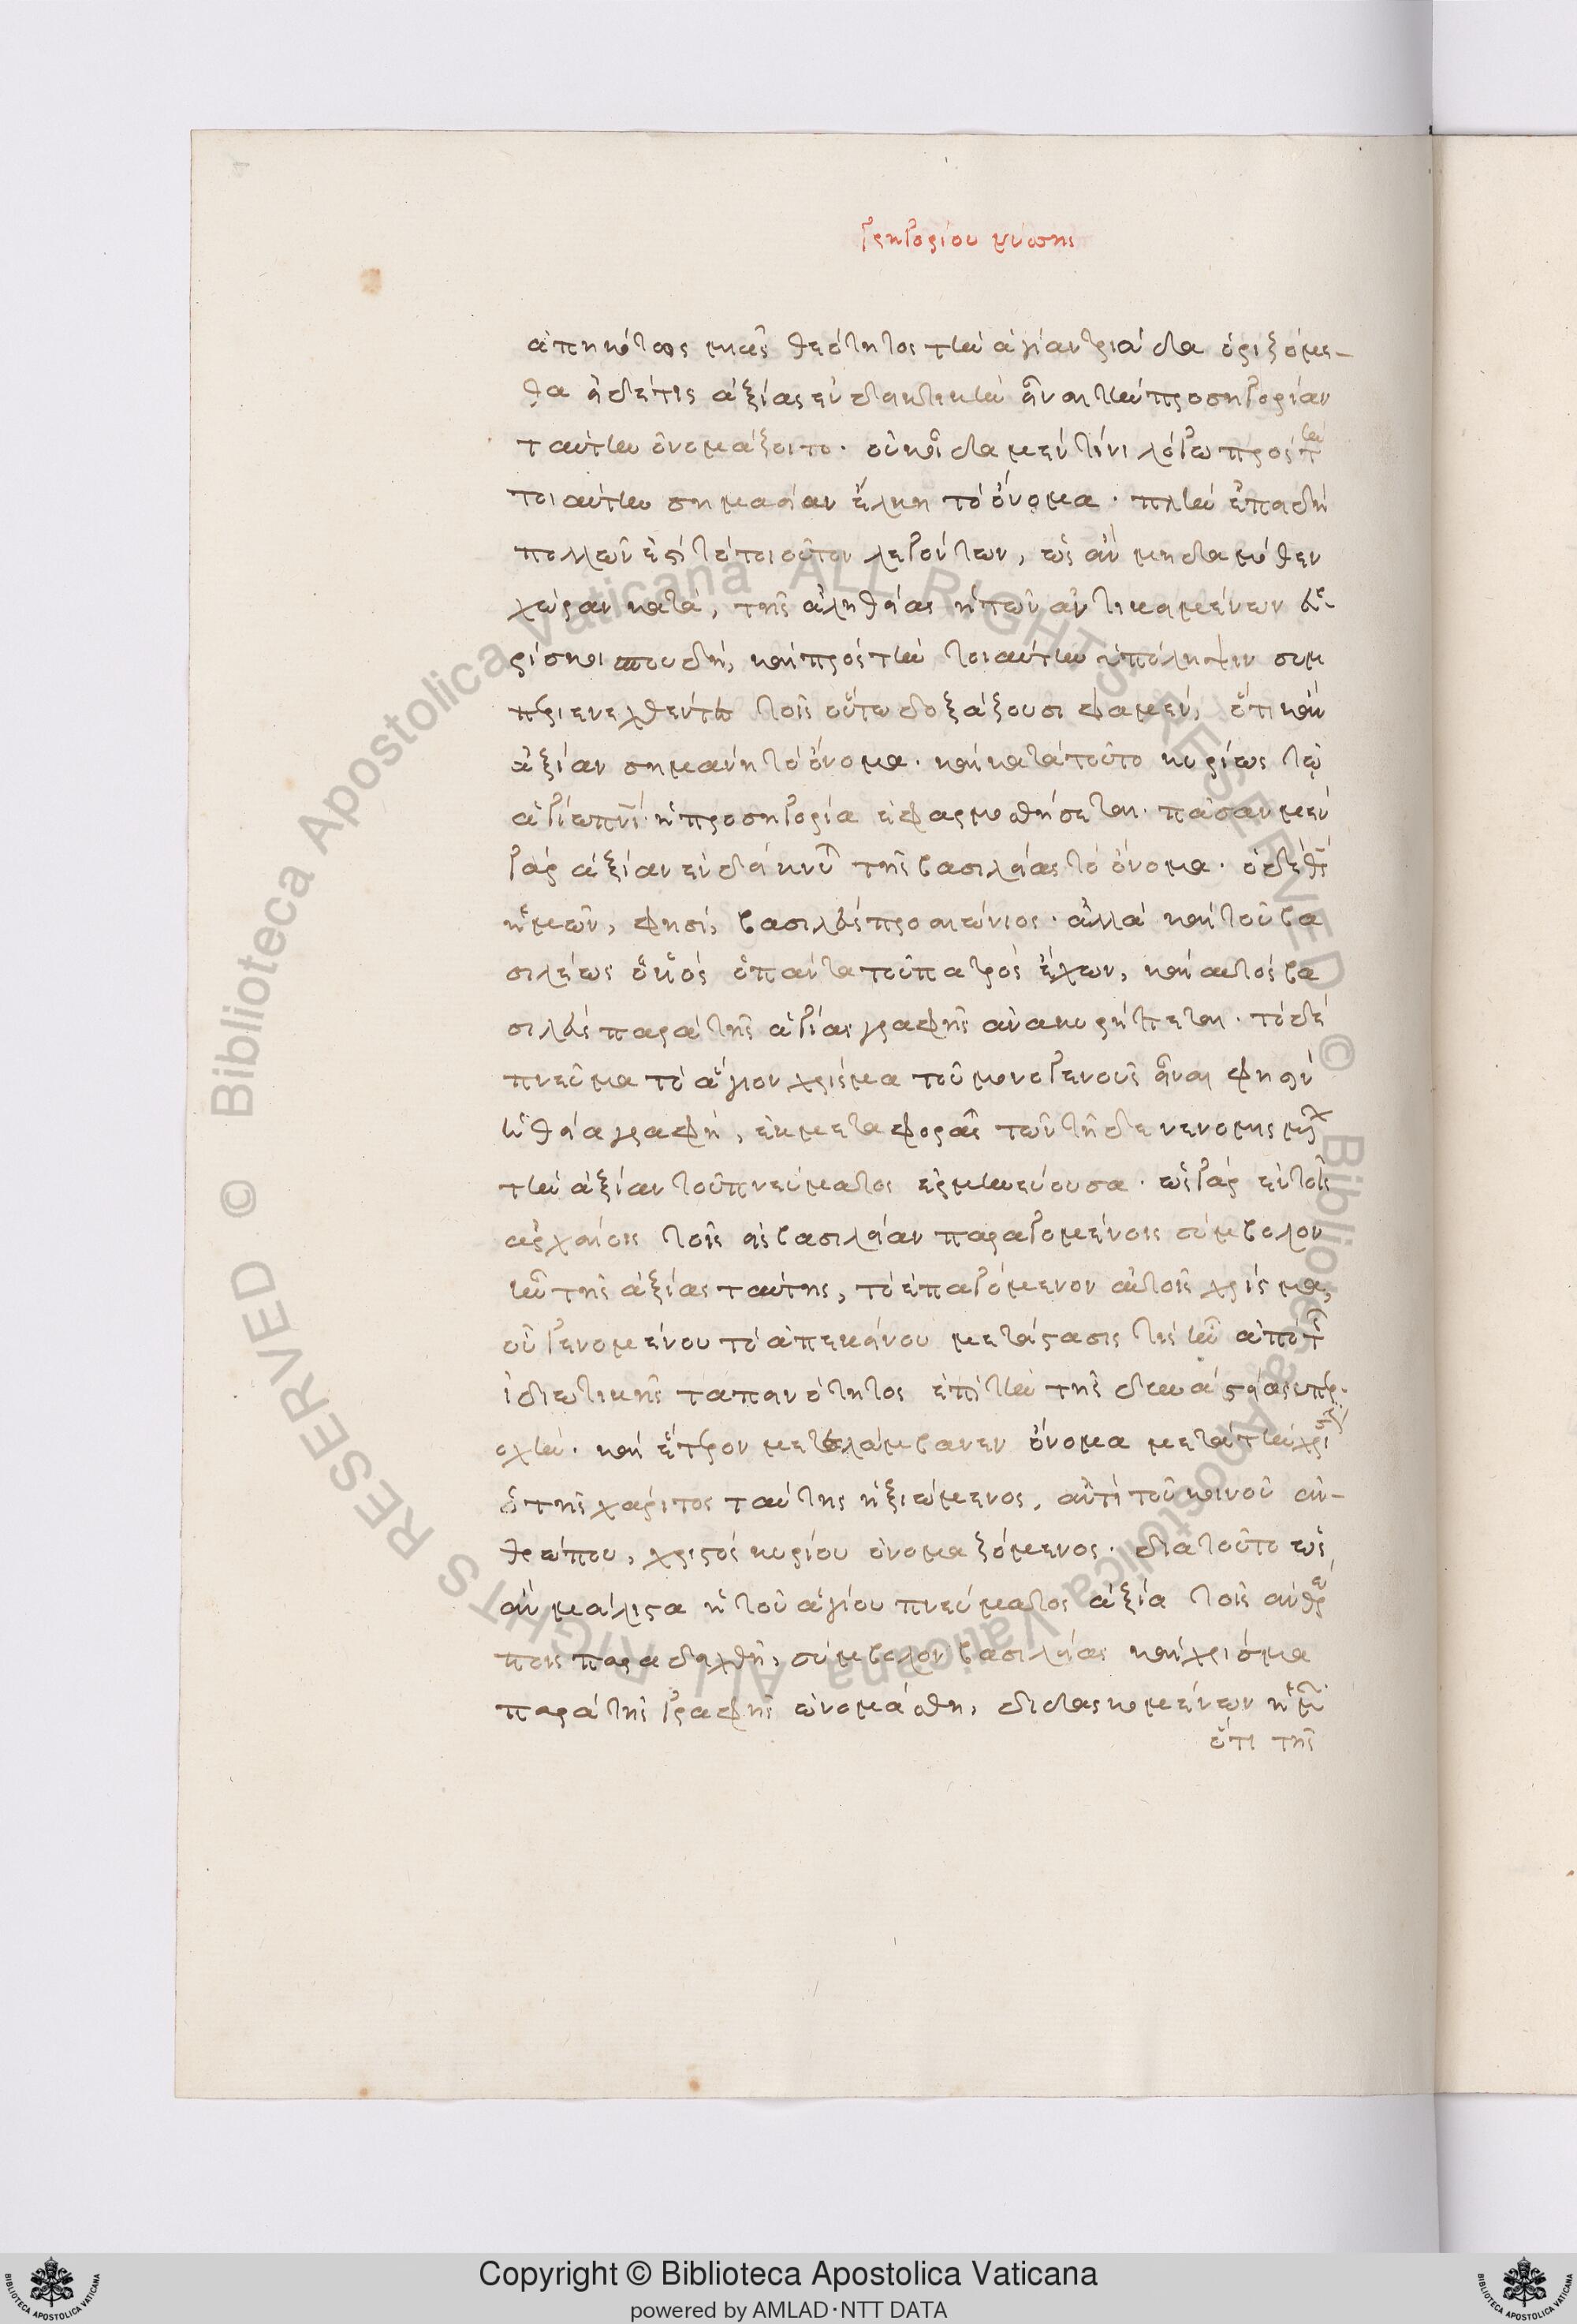 Γρηγορίου νύσσης
ἀπεικότως μιᾶς θεότητος τὴν ἁγίαν τριάδα ὁριζόμε-
θα εἰ δέ τις ἀξίας ἐνδεικτικὴν εἶναι τὴν προσηγορίαν
ταύτην ὀνομάζοιτο. οὐκ οἶδα μὲν τίνι λόγω πρὸς τὴν
τοιαύτην σημασίαν ἕλκει τὸ ὄνομα. πλὴν ἐπειδὴ
πολλῶν ἐστὶ τὸ τοιοῦτον λεγόντων, ὡς ἂν μηδαμόθεν
χώραν κατὰ, τῆς ἀληθείας ἡ τῶν ἀντικειμένων εὑ-
ρίσκοι σπουδὴ, καὶ πρὸς τὴν τοιαύτην ὑπόληψιν συμ
περιενεχθέντες τοῖς οὕτω δοξάζουσι φαμὲν, ὅτι κἂν
ἀξίαν σημαίνη τὸ ὄνομα. καὶ κατὰ τοῦτο κυρίως τῷ
ἁγίω πνι ἡ προσηγορία ἐφαρμοσθήσεται. πᾶσαν μὲν
γὰρ ἀξίαν ἐνδείκνυται τῆς βασιλείας τὸ ὄνομα. ὁ δὲ θς
ἡμῶν, φησὶ, βασιλεὺς προαιώνιος. ἀλλὰ καὶ τοῦ βα
σιλέως ὁ υἱὸς ὁ πάντα τοῦ πατρὸς ἔχων, καὶ αὐτὸς βα
σιλεὺς παρὰ τῆς ἁγίας γραφῆς ἀνακηρύττεται. τὸ δὲ
πνεῦμα τὸ ἅγιον χρίσμα τοῦ μονογενοῦς εἶναι φησὶν
ἡ θεία γραφὴ, ἐκ μεταφορᾶς τῶν τῆδε νενομισμένων
τὴν ἀξίαν τοῦ πνεύματος ἑρμηνεύουσα. ὡς γὰρ ἐν τοῖς
ἀρχαίοις τοῖς εἰς βασιλείαν παραγομένοις σύμβολον
ἦν τῆς ἀξίας ταύτης, τὸ ἐπαγόμενον αὐτοῖς χρίσμα,
οὗ γενομένου τὸ ἀπ' ἐκείνου μετάστασις τίς ἦν ἀπὸ τῆς
ἰδιωτικῆς ταπεινότητος ἐπὶ τὴν τῆς δυναστείας ὑπερ-
οχὴν. καὶ ἕτερον μετελάμβανεν ὄνομα μετὰ τὴν χρίσιν
ὁ τῆς χάριτος ταύτης ἠξιώμενος. ἀντὶ τοῦ κοινοῦ ἀν-
θρώπου, χριστὸς κυρίου ὀνομαζόμενος. διὰ τοῦτο ὡς
ἂν μάλιστα ἡ τοῦ ἁγίου πνεύματος ἀξία τοῖς ἀνθρώ
ποις παραδειχθῆ, σύμβολον βασιλείας καὶ χρίσμα
παρὰ τῆς γραφῆς ὠνομάσθη, διδασκομένων ἡμῶν
ὅτι τῆς
Copyright © Biblioteca Apostolica Vaticana
powered by AMLAD·NTT DATA